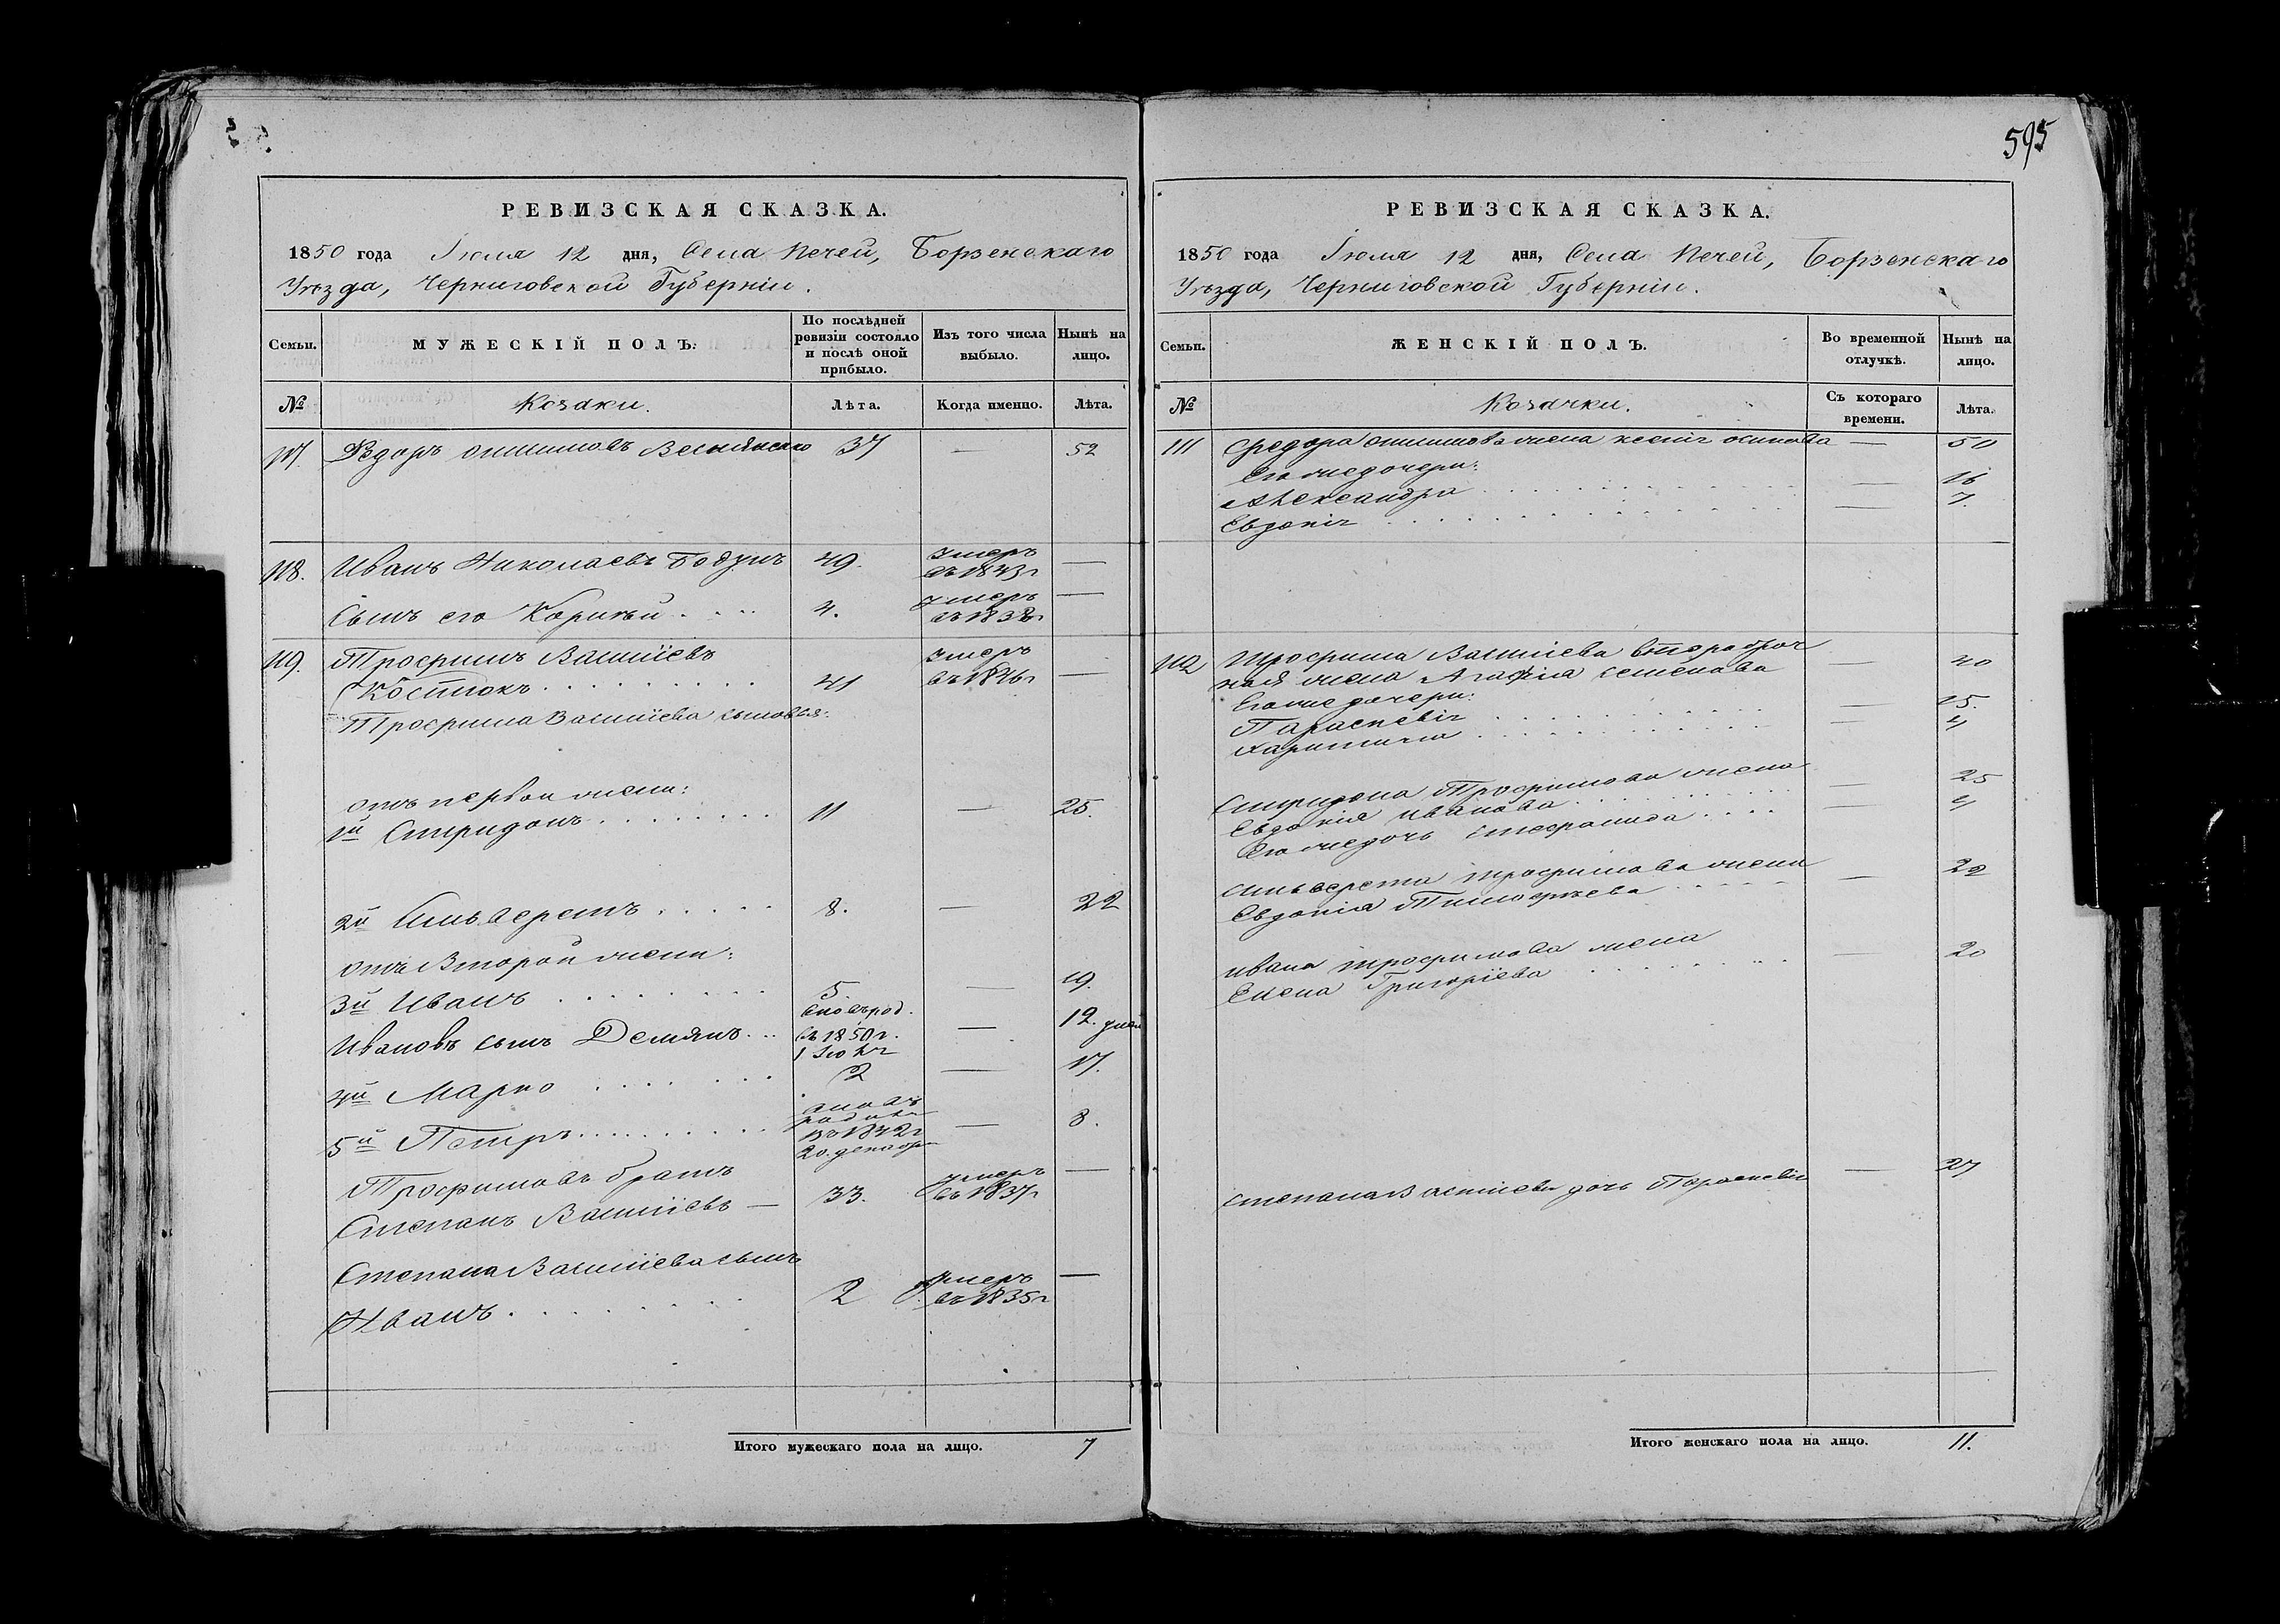 595
РЕВИЗСКАЯ СКАЗКА.
1850 года Іюля 12 дня, Села Печей, Борзенскаго
Уѣзда, Черниговской Губерніи.
Семьи. МУЖЕСКІЙ ПОЛЪ. По послѣдней ревизіи состояло и послѣ оной прибыло. Изъ того числа выбыло. Нынѣ на лицо.
№ Козаки. Лѣта. Когда именно. Лѣта.
117. Федоръ 37 — 52
118. Иванъ Николаевъ 49. Умеръ въ 1843г —
Сынъ его Корнѣй 4. Умеръ въ —
119. Трофимъ Василіевъ
Костюкъ 41 Умеръ въ 1846г —
Трофима Василіева сыновья:
отъ первой жены:
1й Спиридонъ 11 — 25.
2й Сильверстъ 8. — 22
отъ второй жены:
3й Иванъ 5 — 19.
Ивановъ сынъ Демянъ вновь род. въ 1850г. 1 Іюля — 12. дней
4й Марко 2 — 17.
5й Петръ вновь родился въ 1842г 20. декабря — 8.
Трофимовъ братъ
Степанъ Василіевъ — 33. Умеръ въ 1837г —
Степана Василіева сынъ
Иванъ 2 Умеръ въ 1835г —
Итого мужескаго пола на лицо. 7
РЕВИЗСКАЯ СКАЗКА.
1850 года Іюля 12 дня, Села Печей, Борзенскаго
Уѣзда, Черниговской Губерніи.
Семьи. ЖЕНСКІЙ ПОЛЪ. Во временной отлучкѣ. Нынѣ на лицо.
№ Козачки. Съ котораго времени. Лѣта.
111 Федора жена Ксенія Осипова — 50
Его же дочери:
Александра — 16
Евдокія — 7.
112 Трофима Василіева второбрач
ная жена Агафія Семенова — 40
Его же дочери:
Параскевія — 15.
Харитина — 4
Спиридона Трофимова жена
Евдокія Иванова — 25
Его же дочь Степанида — 4
Сильверста Трофимова жена
Евдокія Тимофѣева — 22
Ивана Трофимова жена
Елена Григоріева — 20
Степана Василіева дочь Параскевія — 27
Итого женскаго пола на лицо. 11.